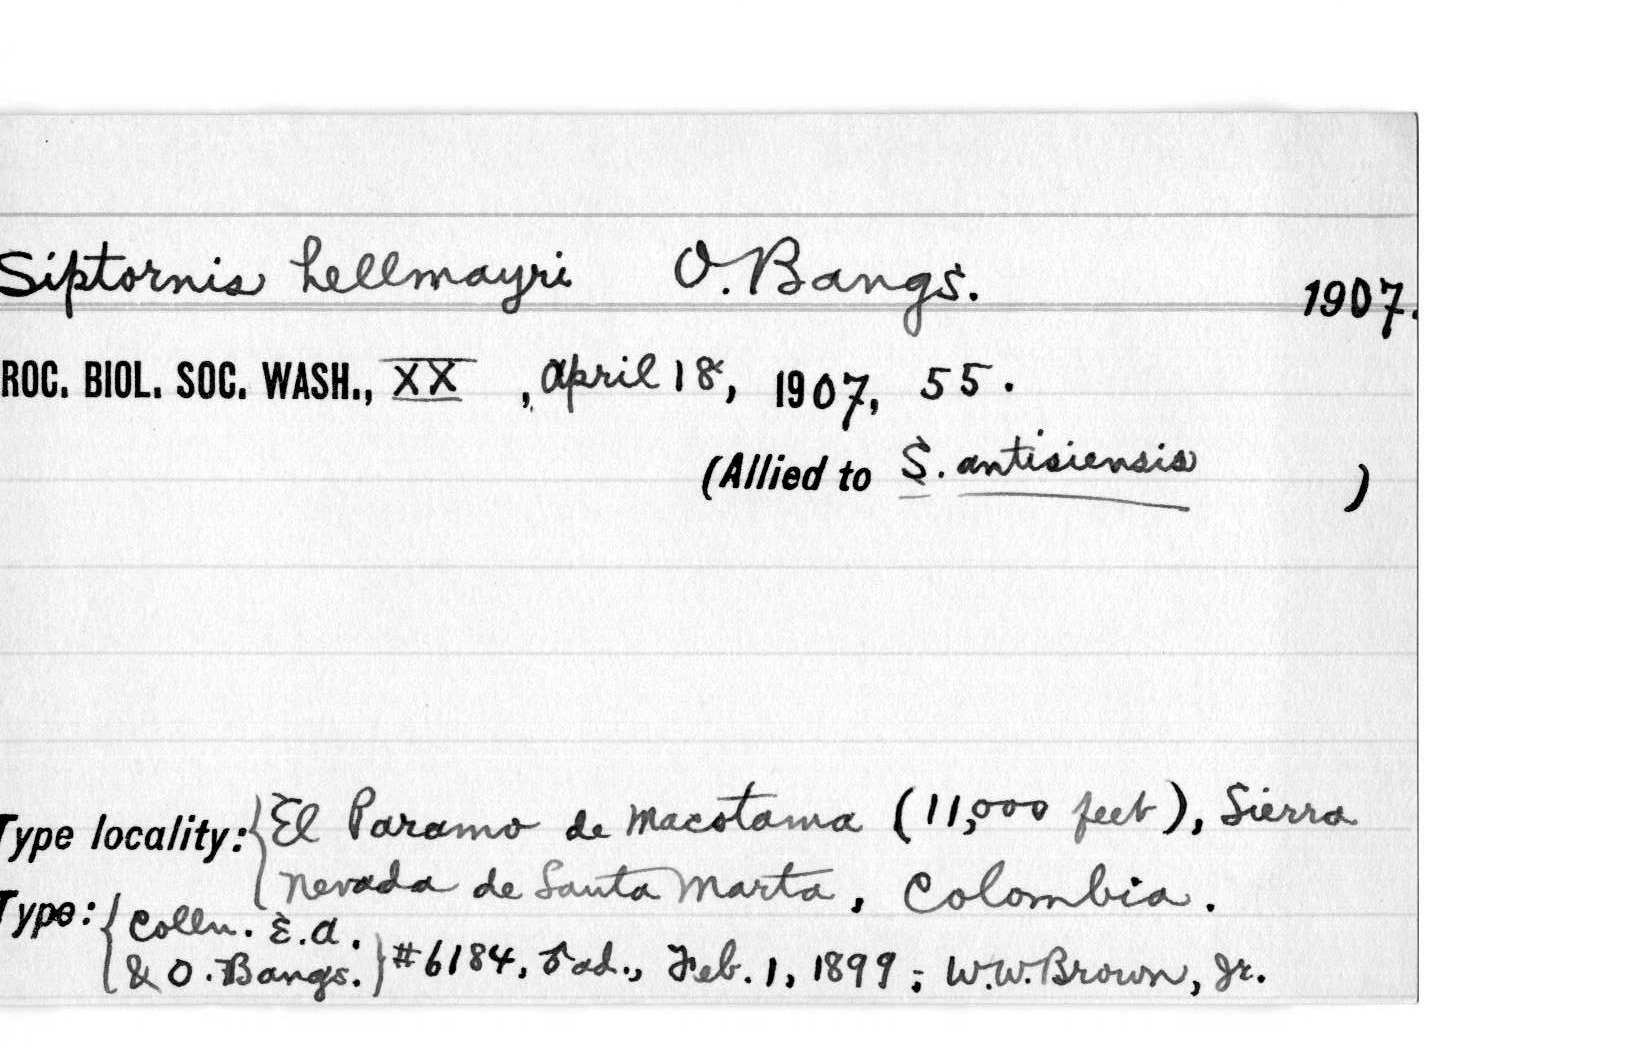 Siptornis hellmayri O. Bangs. 1907.
ROC. BIOL. SOC. WASH., XX, April 18, 1907, 55.
(Allied to S. antisiensis )
Type locality: El Paramo de Macotama (11,000 feet), Sierra
Nevada de Santa Marta, Colombia.
Type: Colln. E.A.
& O. Bangs. #6184, ad., Feb. 1, 1899; W.W. Brown, Jr.